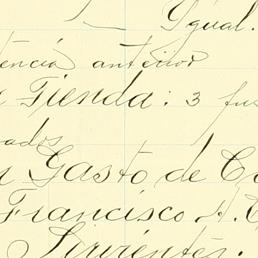 Igual.
tencia anterior
Tienda: 3 fus
ados
Gasto de C
Francisco A. C
Sirvientes.